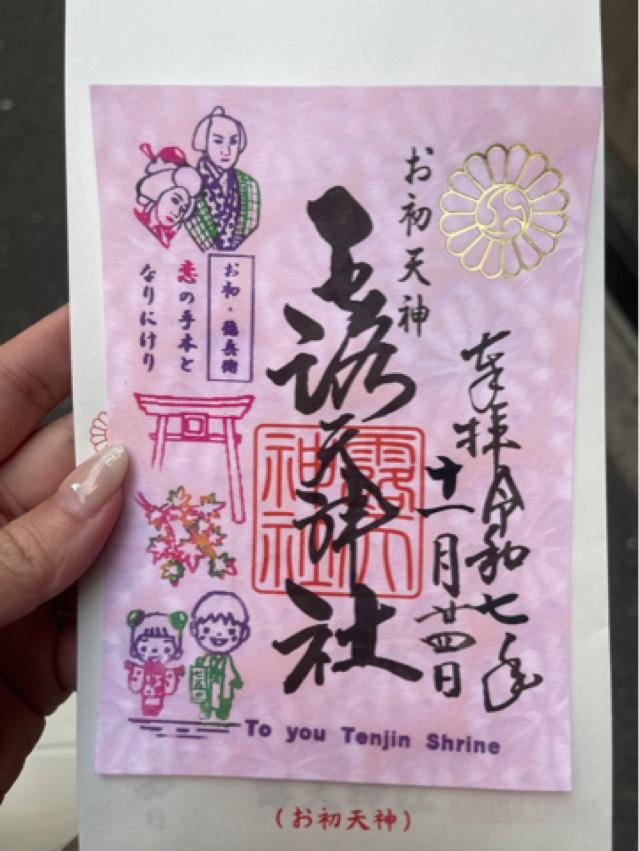 奉拝 令和七年
十一月廿四日
お初天神
露天神社
露天神社
お初・徳兵衛
恋の手本と
なりにけり
To you Tenjin Shrine
(お初天神)